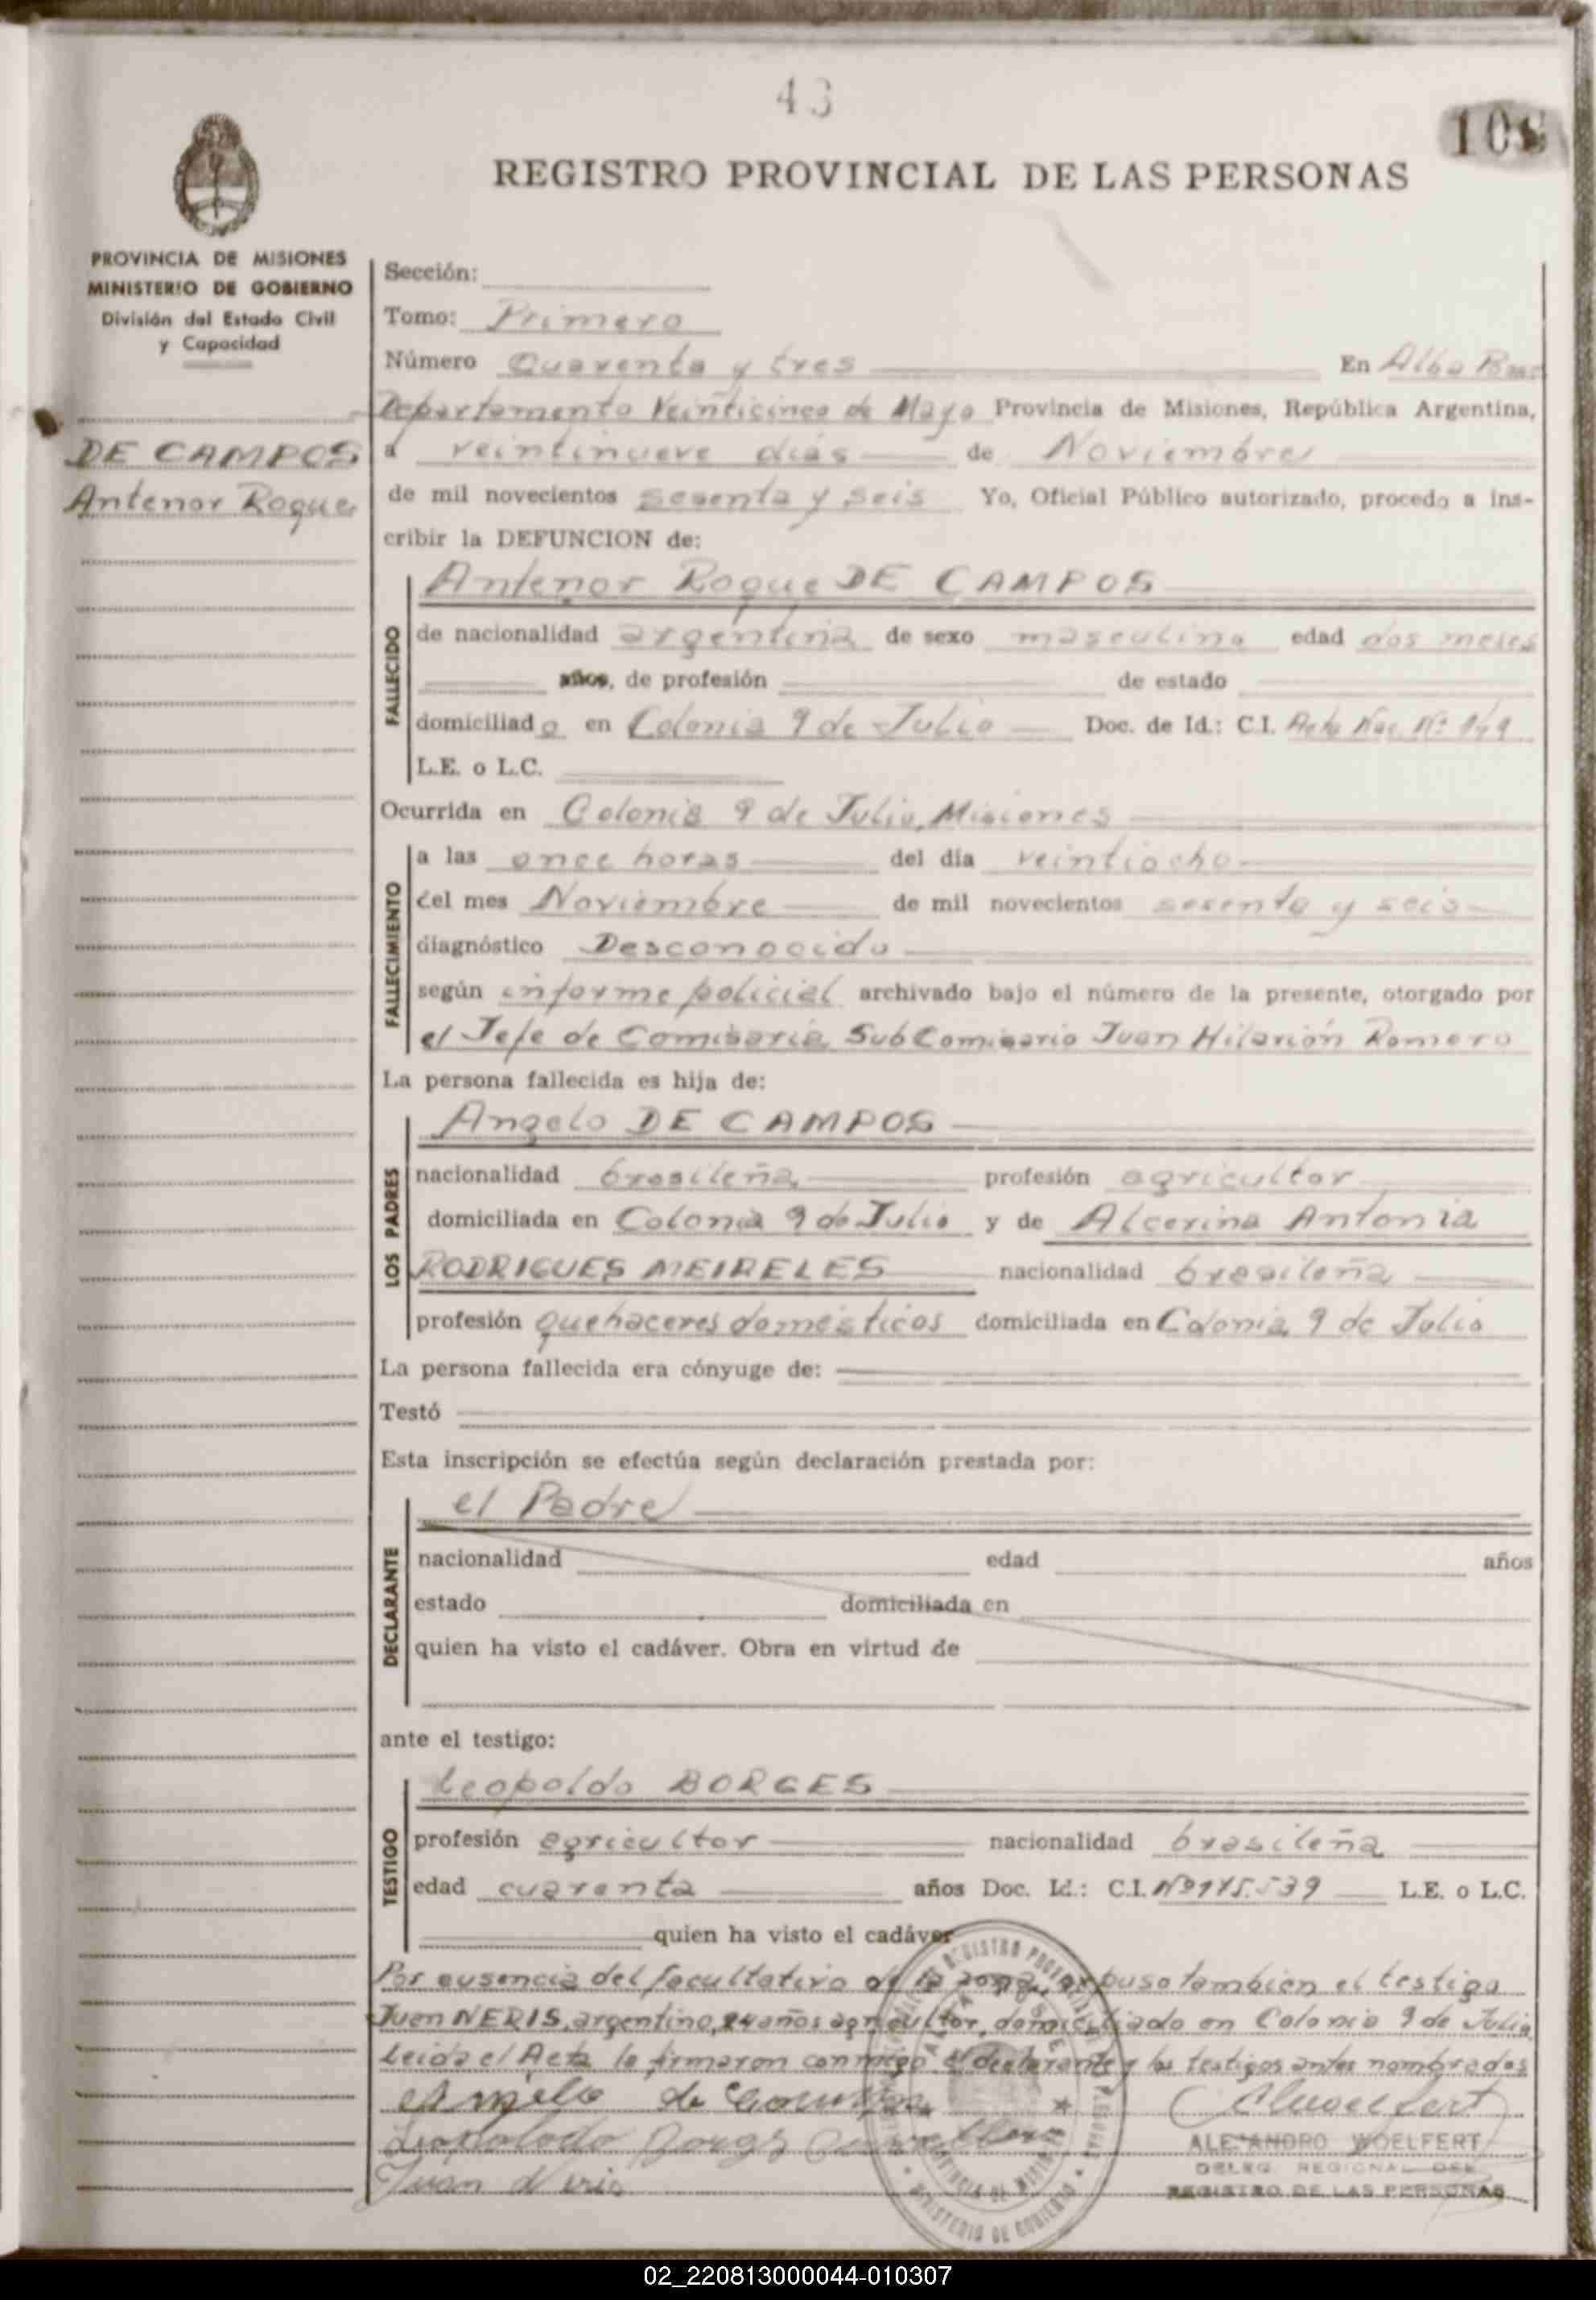 43
108
REGISTRO PROVINCIAL DE LAS PERSONAS
PROVINCIA DE MISIONES
MINISTERIO DE GOBIERNO
División del Estado Civil
y Capacidad
DE CAMPOS
Antenor Roque
Sección:
Tomo: Primero
Número Quarenta y tres En Alba Posse
Departamento Veinticinco de Mayo Provincia de Misiones, República Argentina,
a veintinueve dias de Noviembre
de mil novecientos sesenta y seis Yo, Oficial Público autorizado, procedo a ins-
cribir la DEFUNCION de:
FALLECIDO
Antenor Roque DE CAMPOS
de nacionalidad argentina de sexo masculino edad dos meses
años, de profesión de estado
domiciliado en Colonia 9 de Julio Doc. de Id.: C.I. Acta Nac. Nº
L.E. o L.C.
Ocurrida en Colonia 9 de Julio, Misiones
FALLECIMIENTO
a las once horas del día veintiocho
del mes Noviembre de mil novecientos sesenta y seis
diagnóstico Desconocido
según informe policial archivado bajo el número de la presente, otorgado por
el Jefe de Comisaria SubComisario Juan Hilarión Romero
La persona fallecida es hija de:
LOS PADRES
Angelo DE CAMPOS
nacionalidad brasileña profesión agricultor
domiciliada en Colonia 9 de Julio y de Alcerina Antonia
RODRIGUES MEIRELES nacionalidad brasileña
profesión quehaceres domésticos domiciliada en Colonia 9 de Julio
La persona fallecida era cónyuge de:
Testó
Esta inscripción se efectúa según declaración prestada por:
DECLARANTE
el Padre
nacionalidad edad años
estado domiciliada en
quien ha visto el cadáver. Obra en virtud de
ante el testigo:
TESTIGO
Leopoldo BORGES
profesión agricultor nacionalidad brasileña
edad cuarenta años Doc. Id.: C.I. Nº 115.539 L.E. o L.C.
quien ha visto el cadáver
Por ausencia del facultativo de la zona, expuso tambien el testigo
Juan NERIS, argentino, 24 años agricultor, domiciliado en Colonia 9 de Julio
Leida el Acta la firmaron conmigo el declarante y los testigos antes nombrados
Angelo de Campos
Juan Neris
ALEJANDRO WOELFERT
DELEG. REGIONAL DEL
REGISTRO DE LAS PERSONAS
MINISTERIO DE GOBIERNO
02_220813000044-010307